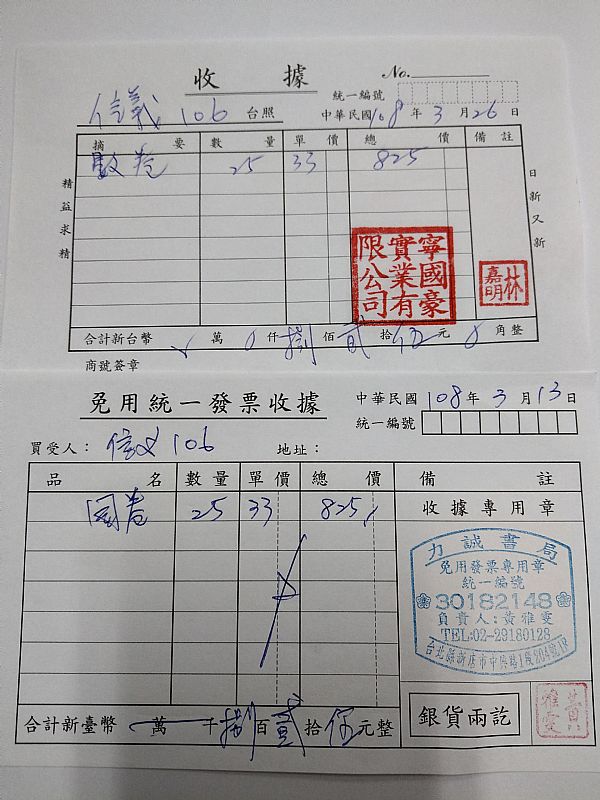 收據
No.
統一編號
信義 106 台照
中華民國108年3月26日
摘要 數量 單價 總價 備註
數卷 25 33 825
精益求精
日新又新
寧國豪實業有限公司
林嘉明
合計新台幣 萬 0仟捌佰貳拾伍元0角整
商號簽章
免用統一發票收據
中華民國108年3月13日
統一編號
買受人： 信义 106 地址：
品名 數量 單價 總價 備註
國卷 25 33 825
收據專用章
力誠書局
免用發票專用章
統一編號
30182148
負責人:黃雅雯
TEL:02-29180128
台北縣新店市中央路1段204號1F
合計新臺幣 萬 千捌百貳拾伍元整
銀貨兩訖
黃雅雯